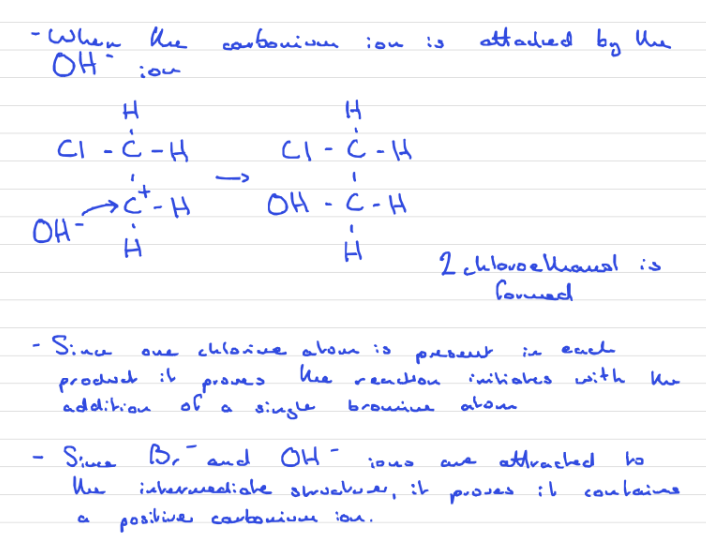 - When the carbonium ion is attacked by the
OH⁻ ion
H H
Cl - C - H Cl - C - H
C⁺ - H → OH - C - H
OH⁻
H H
2 chloroethanol is
formed
- Since one chlorine atom is present in each
product it proves the reaction initiates with the
addition of a single bromine atom
- Since Br⁻ and OH⁻ ions are attracted to
the intermediate structure, it proves it contains
a positive carbonium ion.